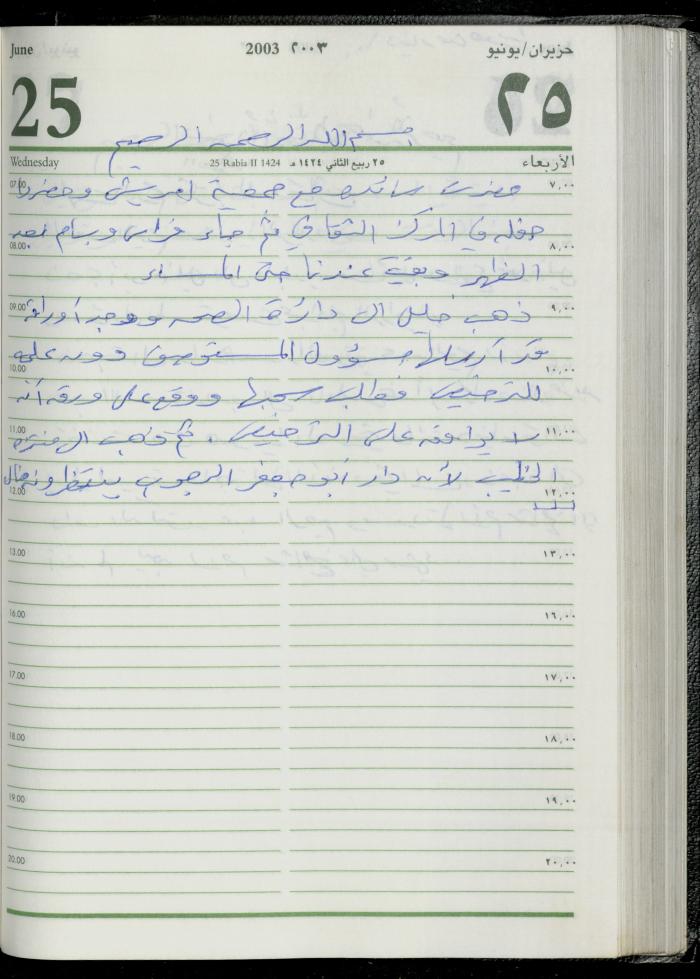 June 2003 ٢٠٠٣ حزيران/يونيو
25 ٢٥
بسم الله الرحمن الرحيم
Wednesday 25 Rabia II 1424 ٢٥ ربيع الثاني ١٤٢٤ هـ الأربعاء
07.00 مع جمعية وحضرنا ٧,٠٠
حفله في المركز الثقافي ثم جاء فراس وسام بعد
08.00 ٨,٠٠
الظهر وبقي عندنا حتى المساء
09.00 ذهب خليل الى دائرة الصحه ووجد أوراقه ٩,٠٠
قد أرسلها مسؤول المستوصف دون علمه
10.00 ١٠,٠٠
للترخيص وطلب سحبها ووقع على ورقه أنه
11.00 لا يوافق على الترخيص . ثم ذهب الى ١١,٠٠
الخطيب لأن دار أبو جعفر ينتظرونه
12.00 ١٢,٠٠
13.00 ١٣,٠٠
16.00 ١٦,٠٠
17.00 ١٧,٠٠
18.00 ١٨,٠٠
19.00 ١٩,٠٠
20.00 ٢٠,٠٠